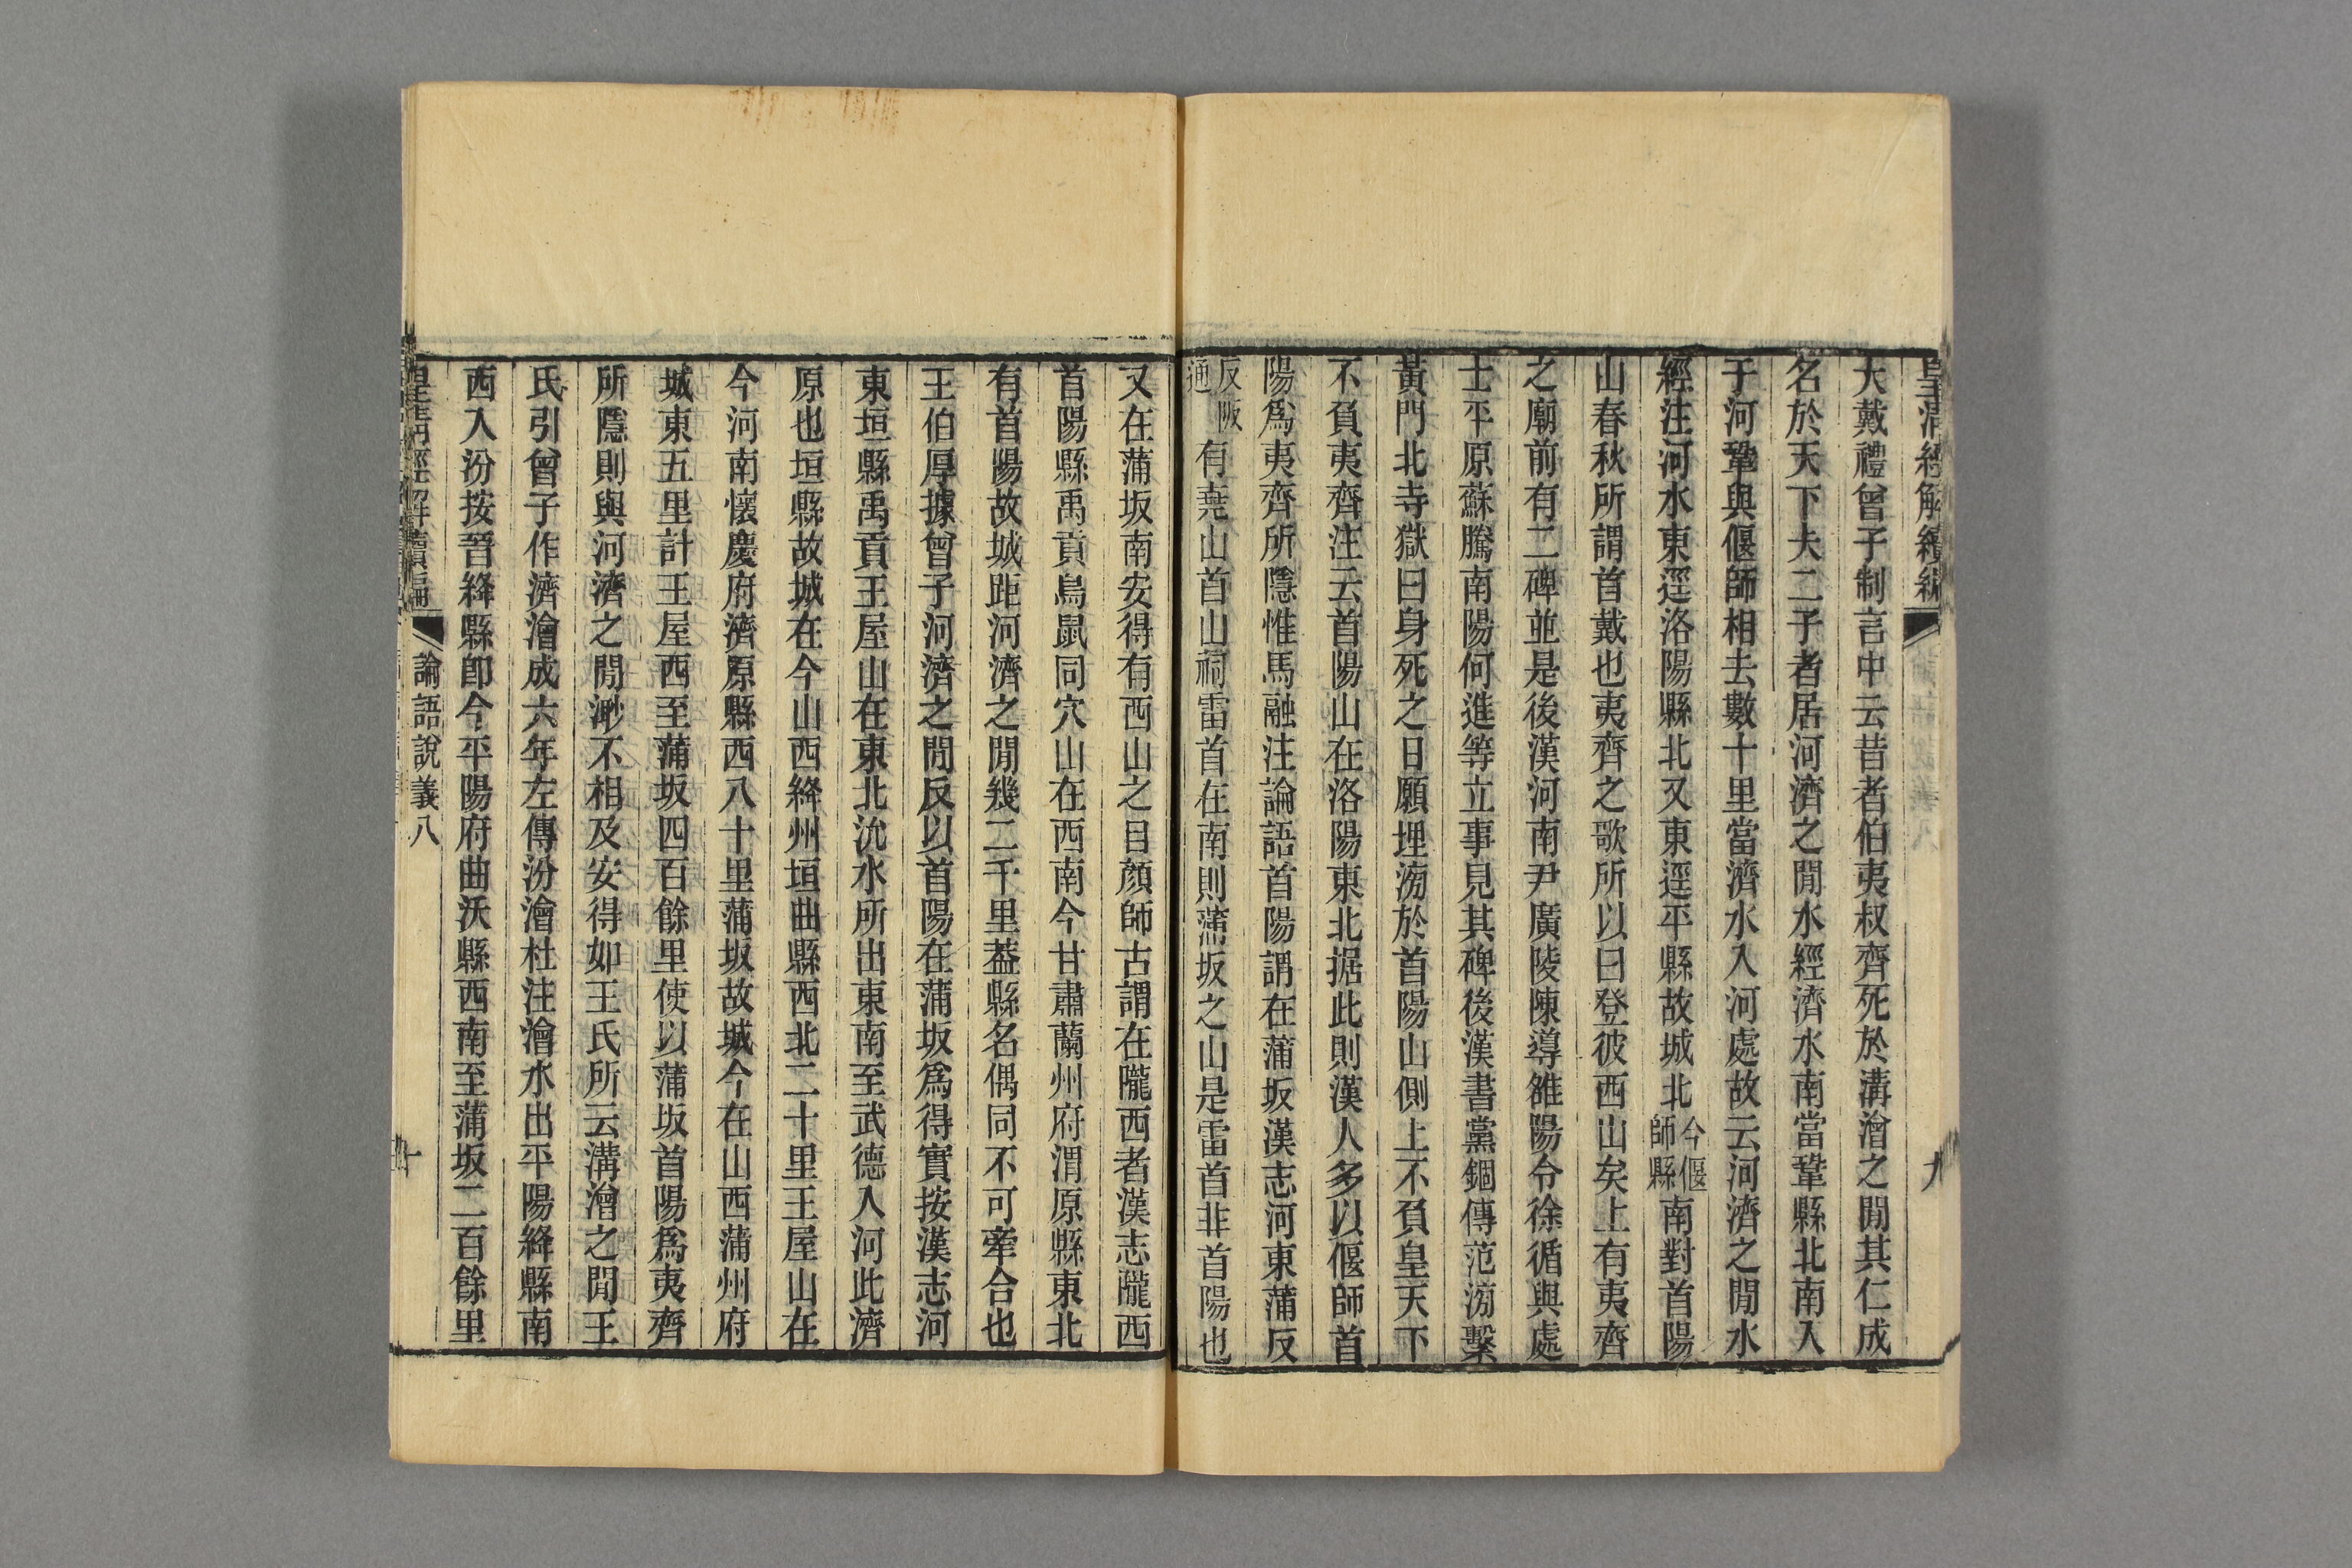 皇清經解續編
九
大戴禮曾子制言中云昔者伯夷叔齊死於溝澮之閒其仁成
名於天下夫二子者居河濟之閒水經濟水南當鞏縣北南入
于河鞏與偃師相去數十里當濟水入河處故云河濟之閒水
經注河水東逕洛陽縣北又東逕平縣故城北今偃師縣南對首陽
山春秋所謂首戴也夷齊之歌所以曰登彼西山矣上有夷齊
之廟前有二碑並是後漢河南尹廣陵陳導雒陽令徐循與處
士平原蘇騰南陽何進等立事見其碑後漢書黨錮傳范滂繫
黃門北寺獄曰身死之日願埋滂於首陽山側上不負皇天下
不負夷齊注云首陽山在洛陽東北据此則漢人多以偃師首
陽爲夷齊所隱惟馬融注論語首陽謂在蒲坂漢志河東蒲反
反阪通有堯山首山祠雷首在南則蒲坂之山是雷首非首陽也
又在蒲坂南安得有西山之目顏師古謂在隴西者漢志隴西
首陽縣禹貢鳥鼠同穴山在西南今甘肅蘭州府渭原縣東北
有首陽故城距河濟之閒幾二千里葢縣名偶同不可牽合也
王伯厚據曾子河濟之閒反以首陽在蒲坂爲得實按漢志河
東垣縣禹貢王屋山在東北沇水所出東南至武德入河此濟
原也垣縣故城在今山西絳州垣曲縣西北二十里王屋山在
今河南懷慶府濟原縣西八十里蒲坂故城今在山西蒲州府
城東五里計王屋西至蒲坂四百餘里使以蒲坂首陽爲夷齊
所隱則與河濟之閒渺不相及安得如王氏所云溝澮之閒王
氏引曾子作濟澮成六年左傳汾澮杜注澮水出平陽絳縣南
西入汾按晉絳縣卽今平陽府曲沃縣西南至蒲坂二百餘里
皇清經解續編
論語說義八
十